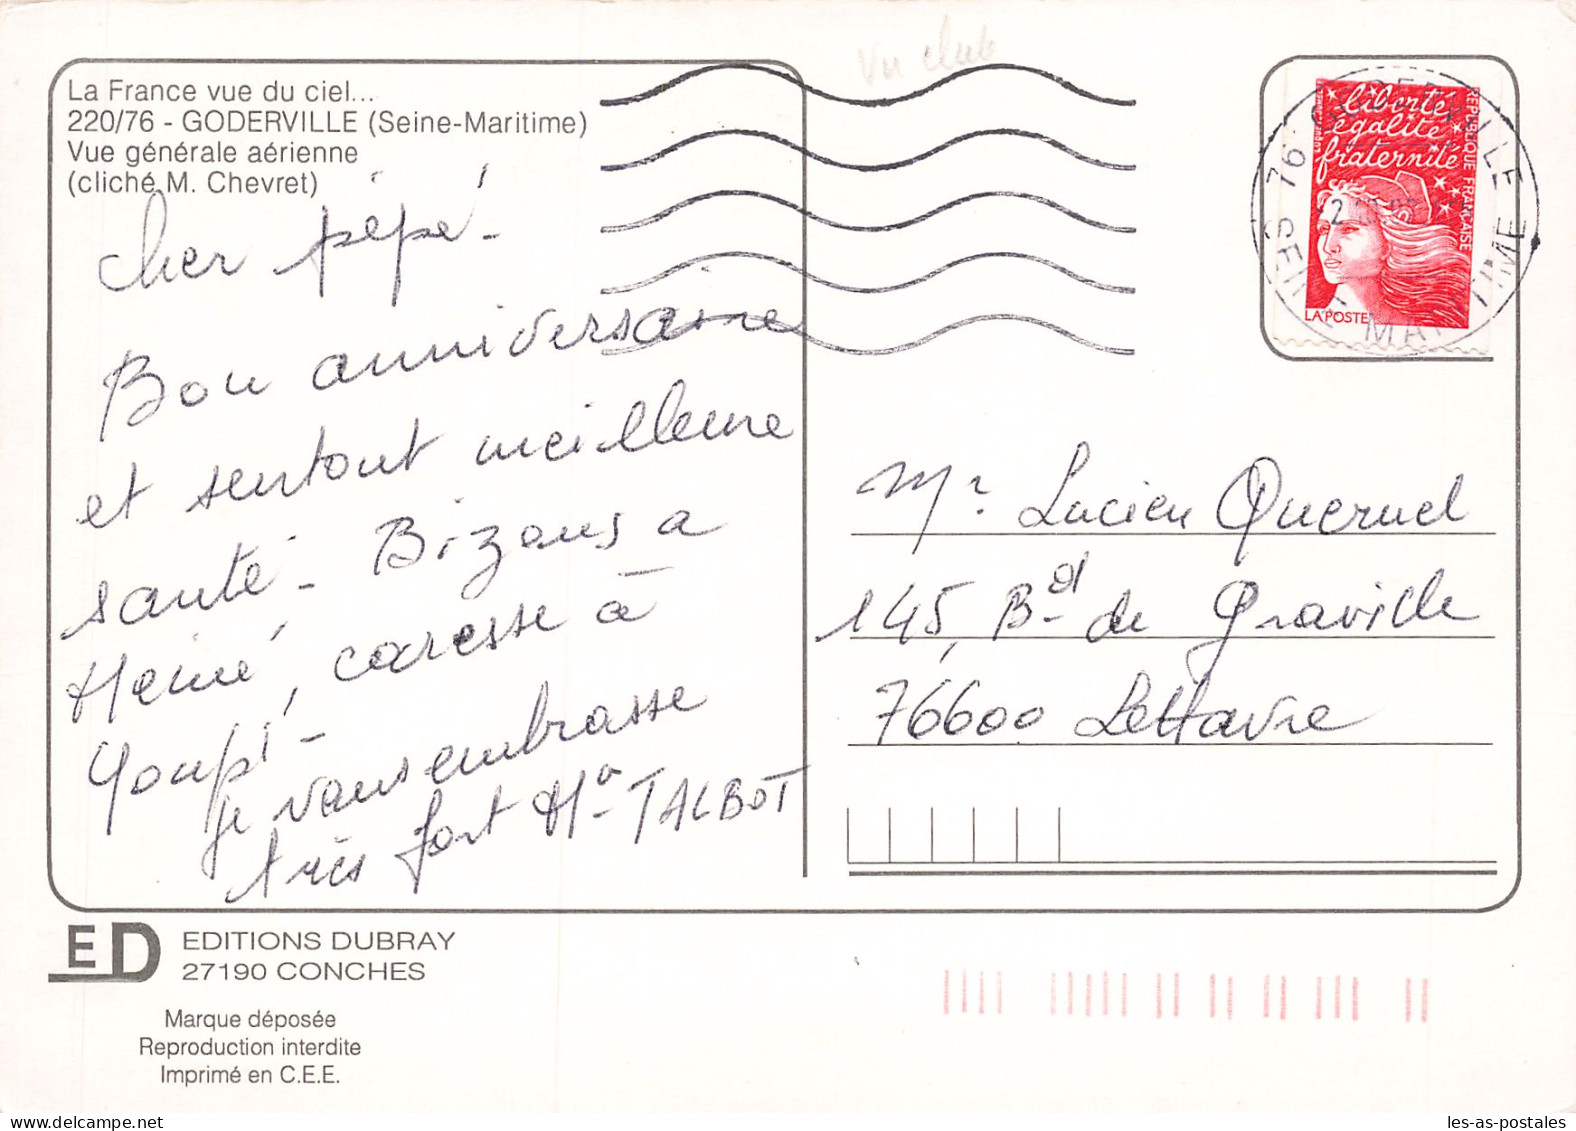 vu club
La France vue du ciel...
220/76 - GODERVILLE (Seine-Maritime)
Vue générale aérienne
(cliché M. Chevret)
cher pépé -
Bon anniversaire
et surtout meilleure
santé - Bizous a
Mémé, caresse à
Youpi -
je vous embrasse
très fort Ma TALBOT
liberté
égalité
fraternité
REPUBLIQUE FRANÇAISE
LA POSTE
76 GODERVILLE
SEINE MARITIME
Mr Lucien Queruel
145, Bd de Graville
76600 Le Havre
ED
EDITIONS DUBRAY
27190 CONCHES
Marque déposée
Reproduction interdite
Imprimé en C.E.E.
les-as-postales